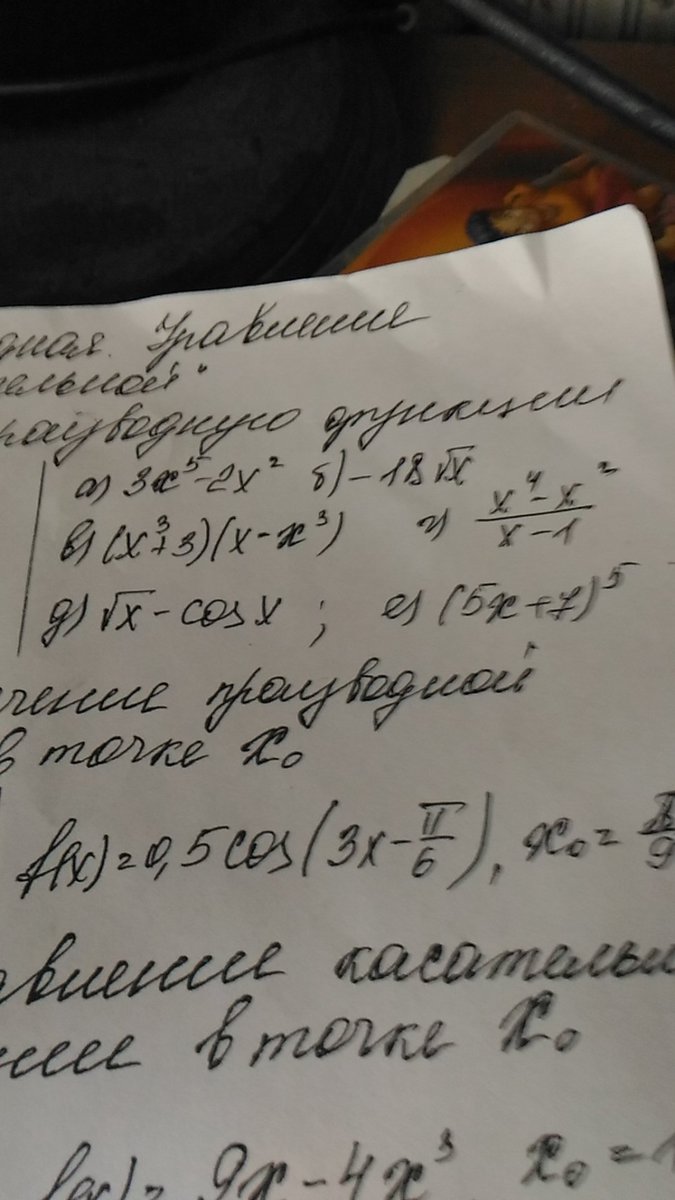 дная. Уравнение
тельной"
производную функции
а) 3x⁵-2x² б) -18√x
в) (x³+3)(x-x³) г) (x⁴-x²)/(x-1)
д) √x - cos x ; е) (5x+7)⁵
чение производной
в точке x₀
f(x)=0,5cos(3x-π/6), x₀=π/9
авнение касательн
нии в точке x₀
f(x)= 9x-4x³ x₀=1